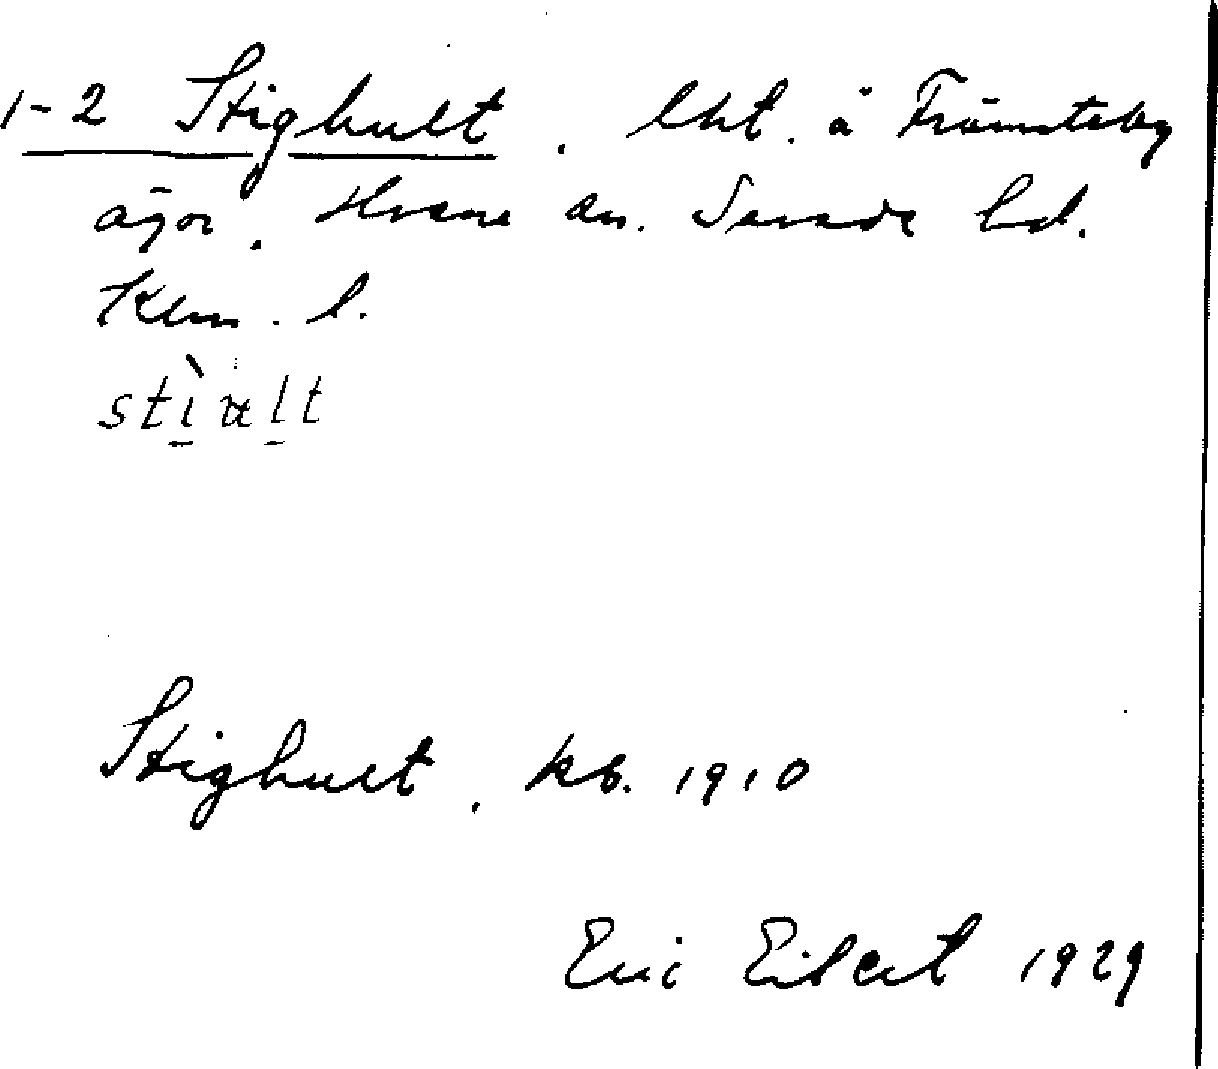 1-2 Stighult. lht. å Främsteby
ägor. Hvena sn. Sevede hd.
Klm. l.
stìu̇lt
Stighult. kb. 1910
Eric Eibert 1929